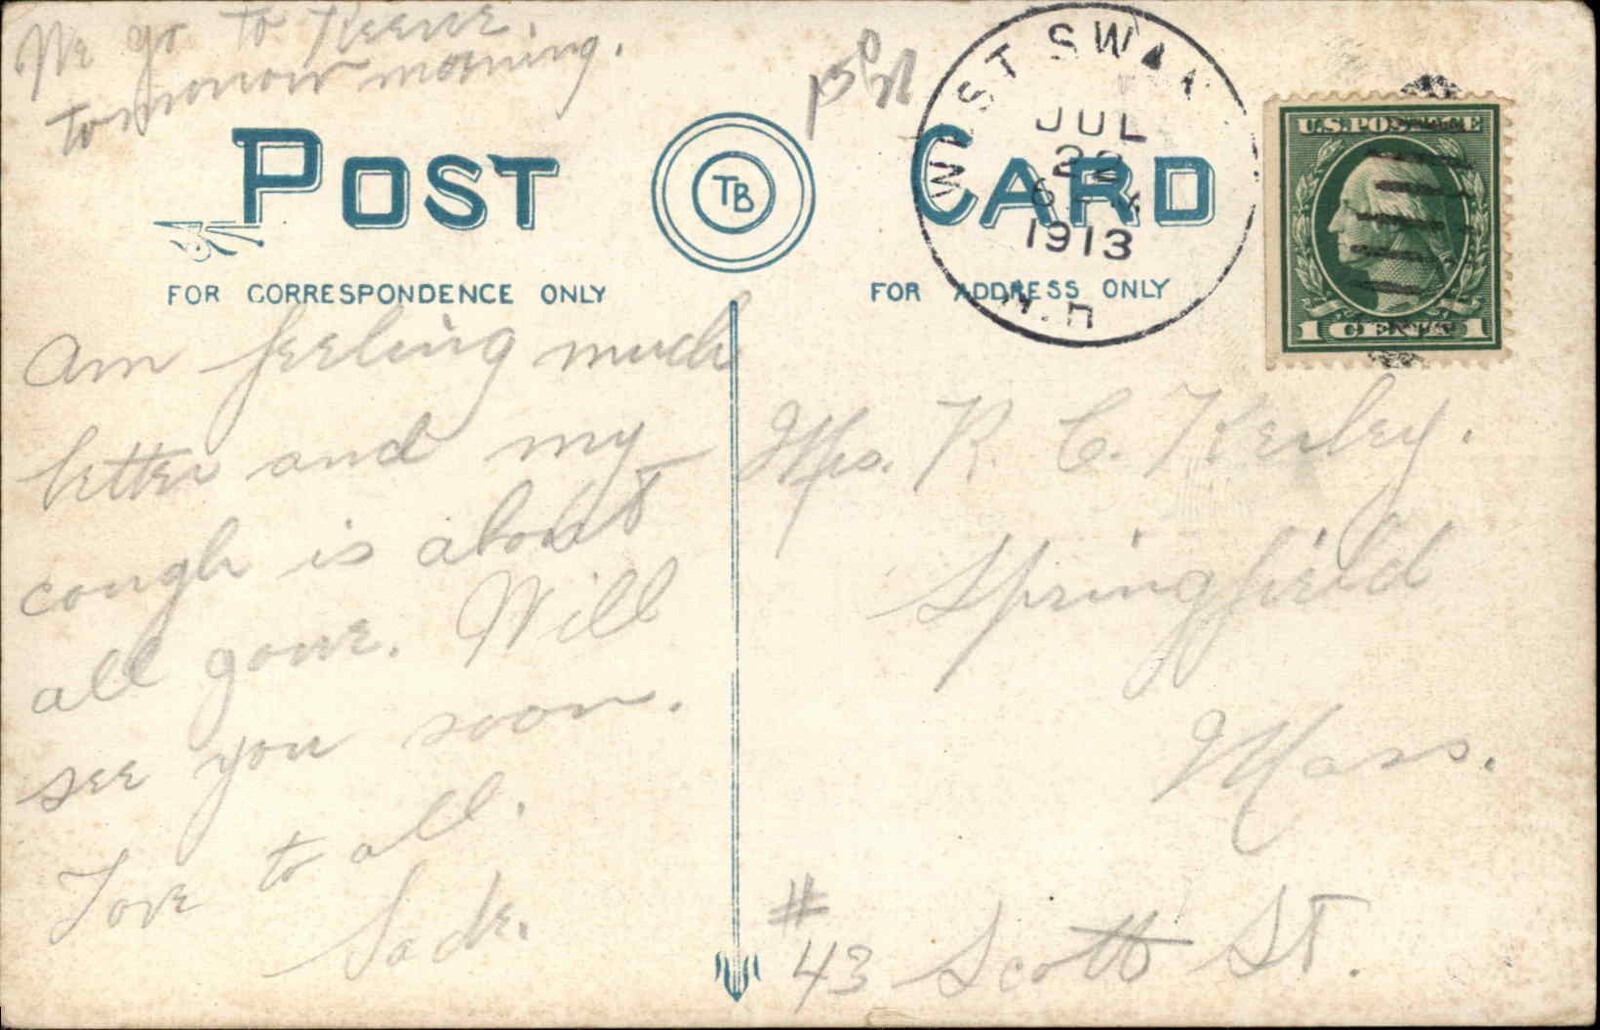 We go to Keene
tomorrow morning.
POST CARD
TB
FOR CORRESPONDENCE ONLY
FOR ADDRESS ONLY
WEST SWAN
JUL
22
6
1913
N.H
U.S. POSTAGE
1 CENTS 1
am feeling much
better and my
cough is about
all gone. Will
see you soon.
Love to all.
Mrs. R. C. Kerley.
Springfield
Mass.
#
43 Scott St.